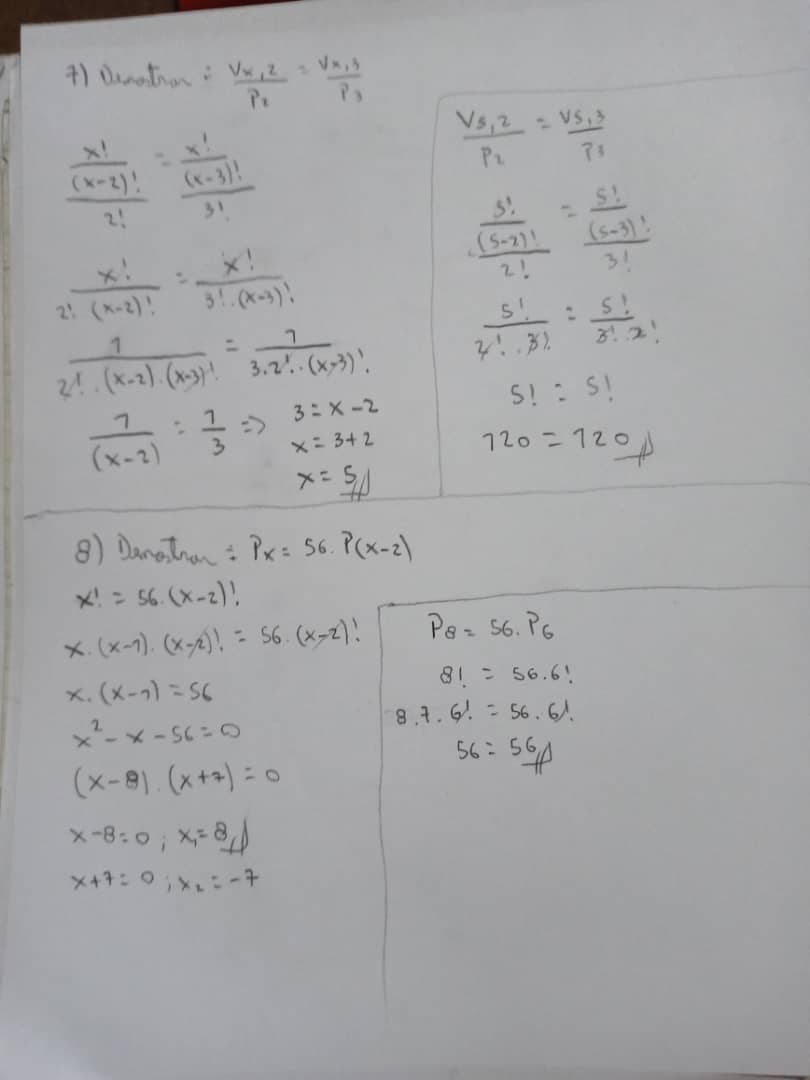 7) Demostrar : Vx,2/P2 = Vx,3/P3
x!/(x-2)!/2! = x!/(x-3)!/3!
x!/2! (x-2)! = x!/3!.(x-3)!
1/2!.(x-2).(x-3)! = 1/3.2!.(x-3)!
1/(x-2) = 1/3 => 3 = x-2
x = 3+2
x = 5
V5,2/P2 = V5,3/P3
5!/(5-2)!/2! = 5!/(5-3)!/3!
5!/2!.3! = 5!/3!.2!
5! = 5!
120 = 120
8) Demostrar : Px = 56.P(x-2)
x! = 56.(x-2)!
x.(x-1).(x-2)! = 56.(x-2)!
x.(x-1) = 56
x² - x - 56 = 0
(x-8).(x+7) = 0
x-8=0 ; x₁=8
x+7=0 ; x₂=-7
P8 = 56.P6
8! = 56.6!
8.7.6! = 56.6!
56 = 56